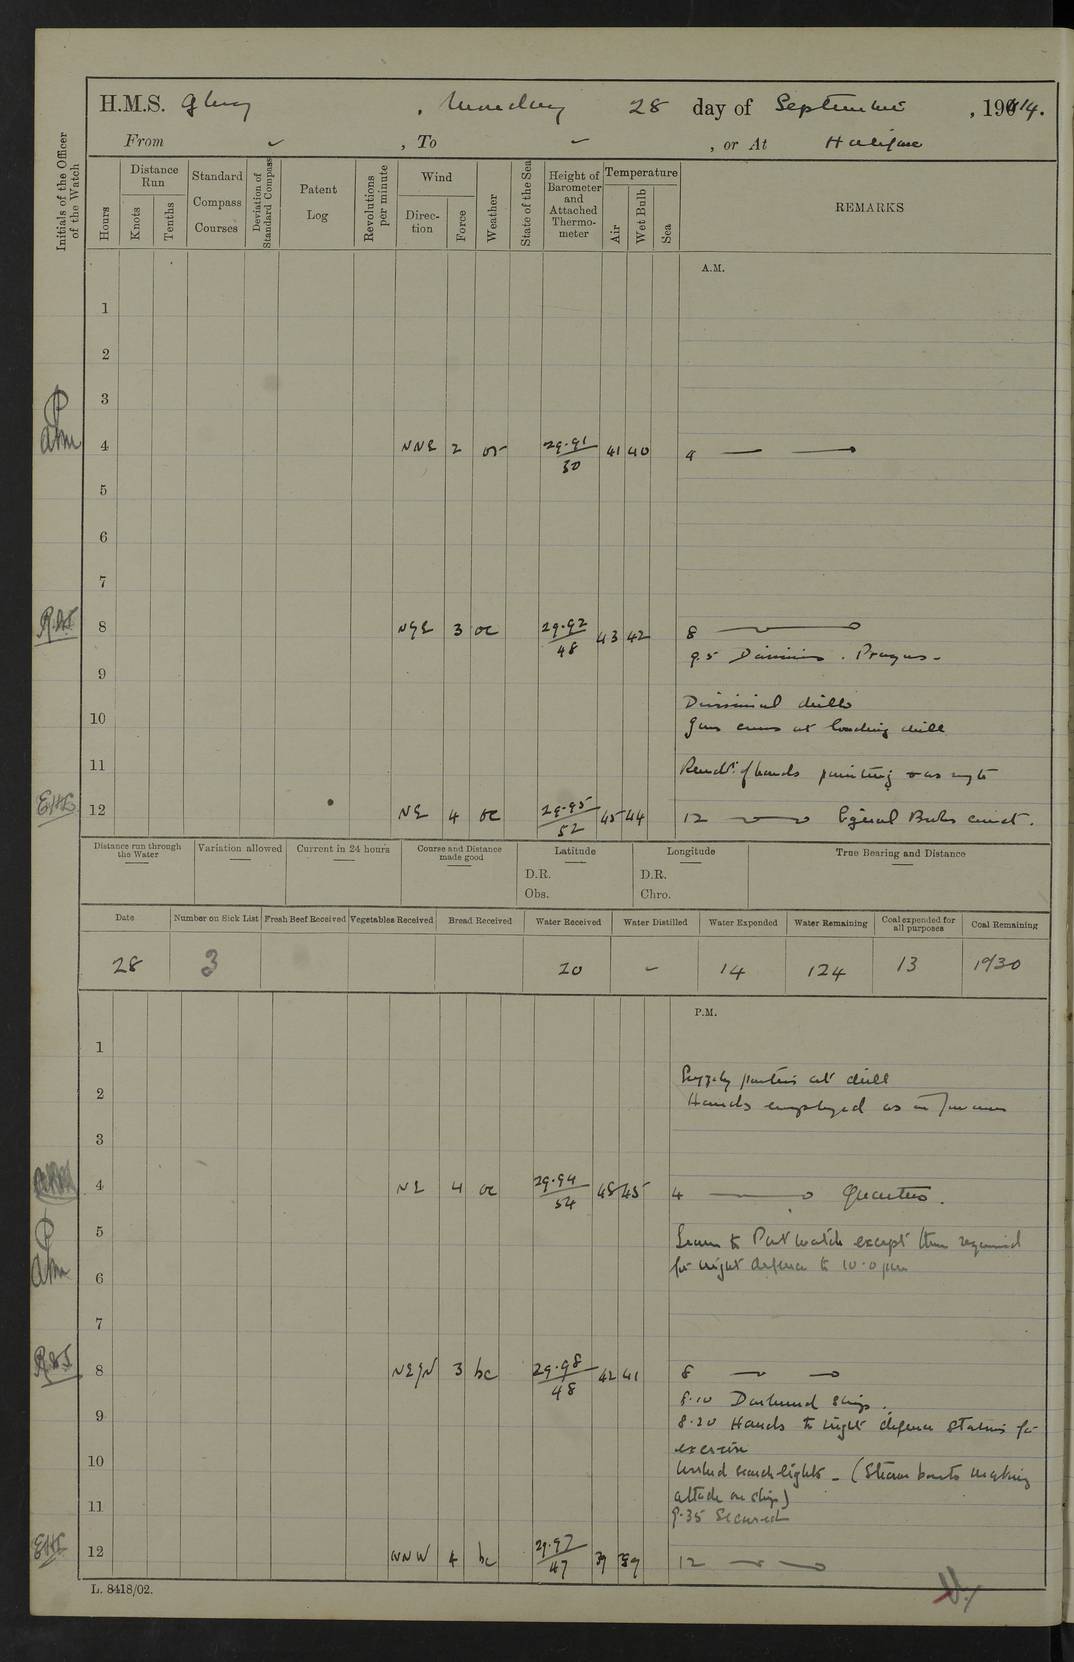 H.M.S. Glory, Monday 28 day of September, 1914.
From ✓, To ✓, or At Halifax
Initials of the Officer of the Watch
Hours
Distance Run
Knots
Tenths
Standard Compass Courses
Deviation of Standard Compass
Patent Log
Revolutions per minute
Wind
Direc-tion
Force
Weather
State of the Sea
Height of Barometer and Attached Thermo-meter
Temperature
Air
Wet Bulb
Sea
REMARKS
A.M.
1
2
3
4 NNE 2 or 29.91/30 41 40 4
5
6
7
8 43 42 3 oc 29.92/48 8
9.5 Divisions. Prayers.
9
Divisional drills
10
Guns crews at loading drill
11
Remdr of hands painting
12 NE 4 oc 29.95/52 45 44 12
Distance run through the Water
Variation allowed
Current in 24 hours
Course and Distance made good
Latitude
D.R.
Obs.
Longitude
D.R.
Chro.
True Bearing and Distance
Date
Number on Sick List
Fresh Beef Received
Vegetables Received
Bread Received
Water Received
Water Distilled
Water Expended
Water Remaining
Coal expended for all purposes
Coal Remaining
28 3 20 - 14 124 13 1930
P.M.
1
parties at drill
2
Hands employed as in forenoon
3
4 NE 4 oc 29.94/54 48 45 4 Quarters.
5
Leave to Part watch except those required
for night defence to 10.0 pm
6
7
8 3 bc 29.98/48 42 41 8
8.10 Darkened ship.
9
8.20 Hands to night defence stations for
exercise
10
Worked searchlights - (Steam boats making
attack on ship)
11
9.35 Secured
12 NNW 4 bc 29.97/47 39 12
L. 8418/02.